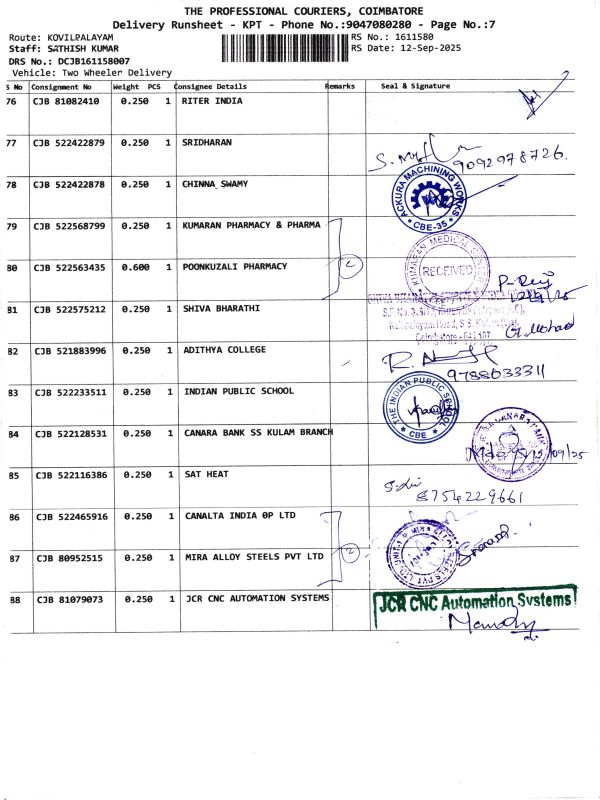 THE PROFESSIONAL COURIERS, COIMBATORE
Delivery Runsheet - KPT - Phone No.:9047080280 - Page No.:7
Route: KOVILPALAYAM RS No.: 1611580
Staff: SATHISH KUMAR RS Date: 12-Sep-2025
DRS No.: DCJB161158007
Vehicle: Two Wheeler Delivery
S No Consignment No Weight PCS Consignee Details Remarks Seal & Signature
76 CJB 81082410 0.250 1 RITER INDIA
77 CJB 522422879 0.250 1 SRIDHARAN
9092978726.
78 CJB 522422878 0.250 1 CHINNA SWAMY
ACKURA MACHINING WORKS
* CBE-35 *
79 CJB 522568799 0.250 1 KUMARAN PHARMACY & PHARMA
KUMARAN MEDICAL
RECEIVED
80 CJB 522563435 0.600 1 POONKUZALI PHARMACY
2
81 CJB 522575212 0.250 1 SHIVA BHARATHI
82 CJB 521883996 0.250 1 ADITHYA COLLEGE
9788633311
83 CJB 522233511 0.250 1 INDIAN PUBLIC SCHOOL
THE INDIAN PUBLIC SCHOOL
* CBE *
84 CJB 522128531 0.250 1 CANARA BANK SS KULAM BRANCH
85 CJB 522116386 0.250 1 SAT HEAT
8754229661
86 CJB 522465916 0.250 1 CANALTA INDIA OP LTD
87 CJB 80952515 0.250 1 MIRA ALLOY STEELS PVT LTD
2
88 CJB 81079073 0.250 1 JCR CNC AUTOMATION SYSTEMS
JCR CNC Automation Systems